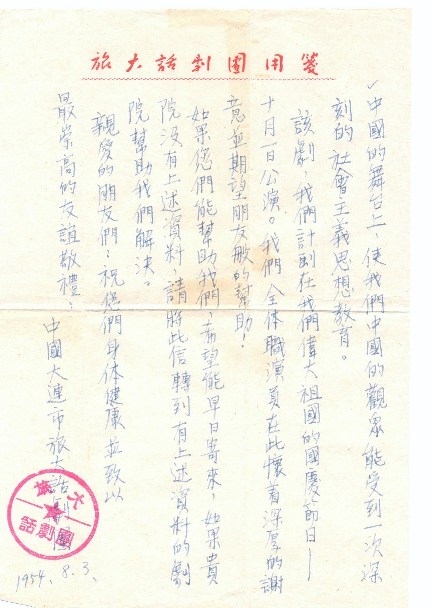 旅大話劇團用箋
中國的舞台上，使我們中國的觀眾能受到一次深
刻的社會主義思想教育。
該劇，我們計劃在我們偉大祖國的國慶節日——
十月一日公演。我們全体職演員在此懷着深厚的謝
意並期望朋友般的幫助！
如果您們能幫助我們，希望能早日寄來，如果貴
院沒有上述資料，請將此信轉到有上述資料的劇
院幫助我們解決。
親愛的朋友們：祝您們身体健康並致以
最崇高的友誼敬禮！
中國大連市旅大話劇團
旅大
話劇團
1954.8.3.